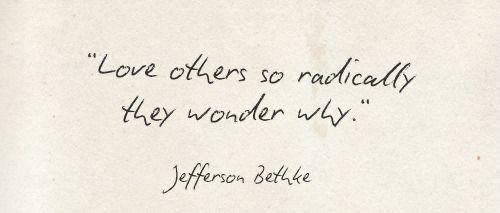 “Love others so radically
they wonder why.“
Jefferson Bethke